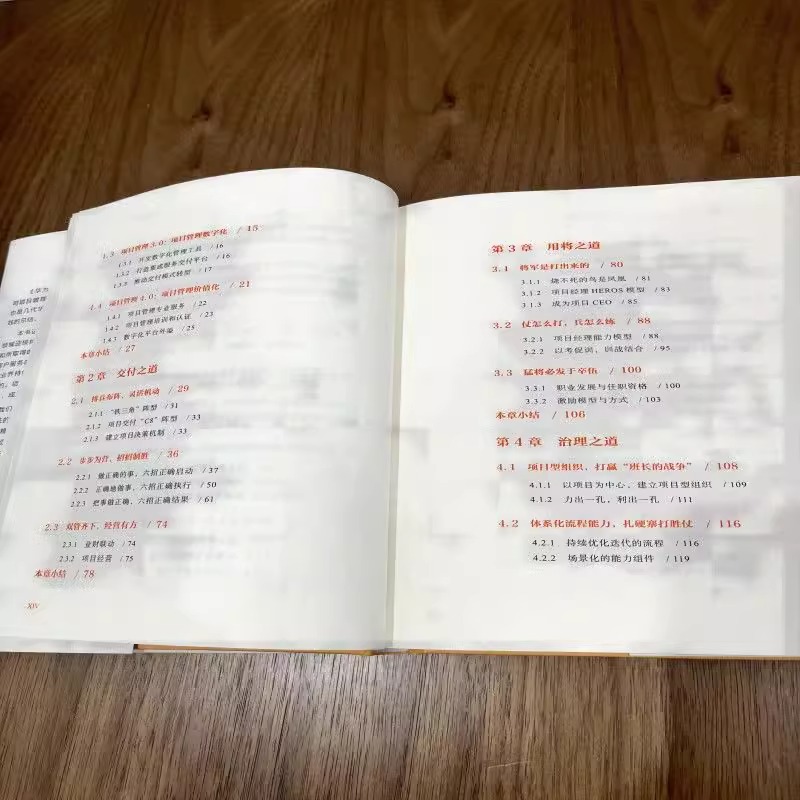 1.3 项目管理3.0：项目管理数字化 / 15
1.3.1 开发数字化管理工具 / 16
1.3.2 打造集成服务交付平台 / 16
1.3.3 推动交付模式转型 / 17
项目管理4.0：项目管理价值化 / 21
1.4.1 项目管理专业服务 / 22
1.4.2 项目管理培训和认证 / 23
1.4.3 数字化平台外溢 / 25
本章小结 / 27
第2章 交付之道
2.1 排兵布阵，灵活机动 / 29
2.1.1 “铁三角”阵型 / 31
2.1.2 项目交付“C8”阵型 / 33
2.1.3 建立项目决策机制 / 33
2.2 步步为营，招招制胜 / 36
2.2.1 做正确的事，六招正确启动 / 37
2.2.2 正确地做事，六招正确执行 / 50
2.2.3 把事做正确，六招正确结果 / 61
2.3 双管齐下，经营有方 / 74
2.3.1 业财联动 / 74
2.3.2 项目经营 / 75
本章小结 / 78
XIV
第3章 用将之道
3.1 将军是打出来的 / 80
3.1.1 烧不死的鸟是凤凰 / 81
3.1.2 项目经理HEROS模型 / 83
3.1.3 成为项目CEO / 85
3.2 仗怎么打，兵怎么练 / 88
3.2.1 项目经理能力模型 / 88
3.2.2 以考促训，训战结合 / 95
3.3 猛将必发于卒伍 / 100
3.3.1 职业发展与任职资格 / 100
3.3.2 激励模型与方式 / 103
本章小结 / 106
第4章 治理之道
4.1 项目型组织，打赢“班长的战争” / 108
4.1.1 以项目为中心，建立项目型组织 / 109
4.1.2 力出一孔，利出一孔 / 111
4.2 体系化流程能力，扎硬寨打胜仗 / 116
4.2.1 持续优化迭代的流程 / 116
4.2.2 场景化的能力组件 / 119